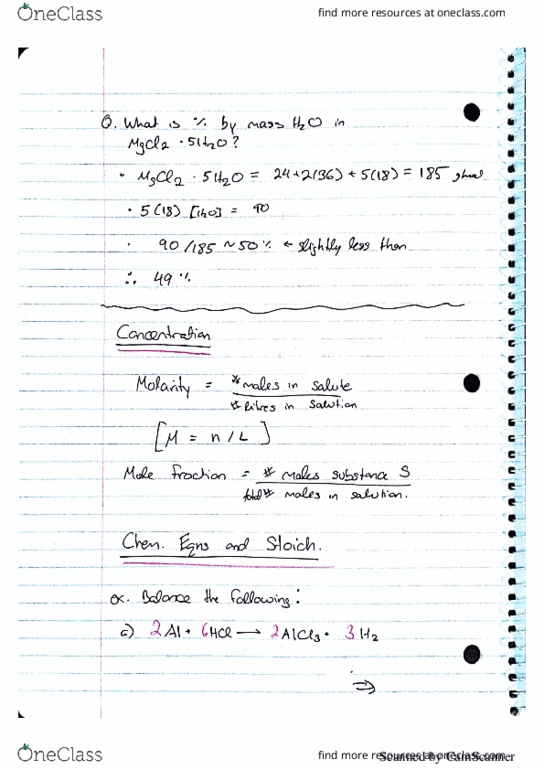 OneClass find more resources at oneclass.com
Q. What is % by mass H2O in
MgCl2 · 5H2O?
· MgCl2 · 5H2O = 24+2(36) + 5(18) = 185 g/mol
· 5(18) [H2O] = 90
· 90/185 ~ 50% ← slightly less than
∴ 49%
Concentration
Molarity = # moles in solute
# litres in solution
[M = n/L]
Mole fraction = # moles substance S
total # moles in solution.
Chem. Eqns and Stoich.
ex. Balance the following:
a) 2Al + 6HCl → 2AlCl3 + 3H2
⇒
OneClass find more resources at oneclass.com
Scanned by CamScanner